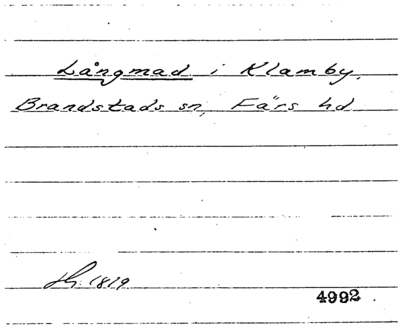 Långmad i Klamby,
Brandstads sn, Färs hd
1819
4992